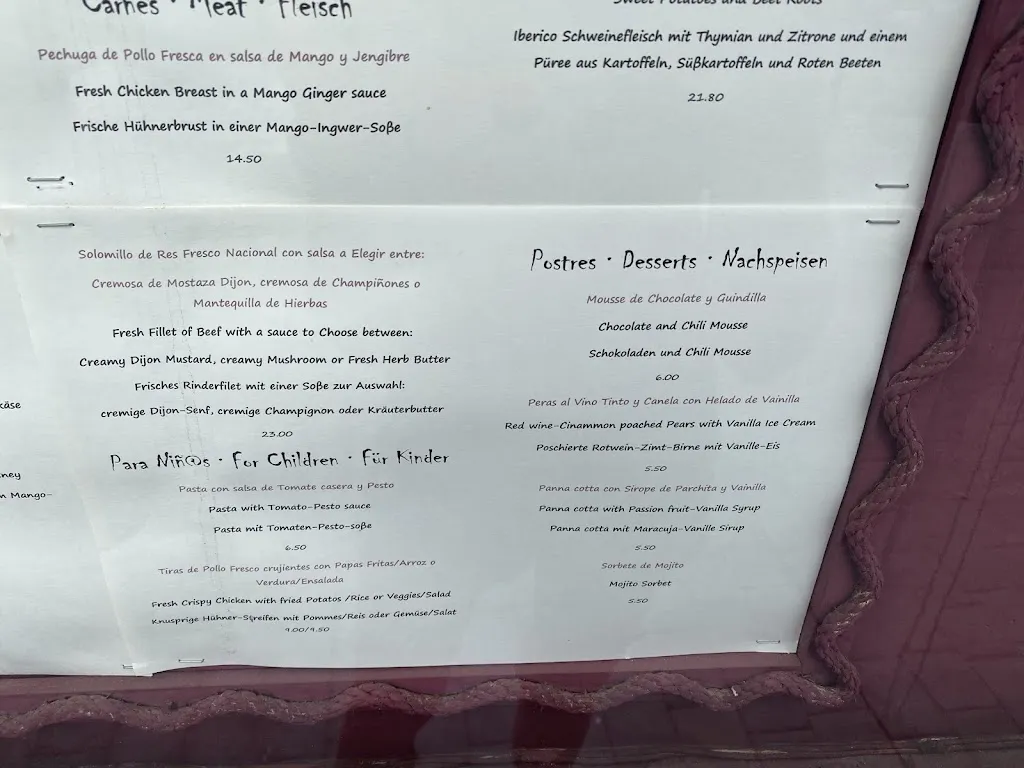 Carnes · Meat · Fleisch
Pechuga de Pollo Fresca en salsa de Mango y Jengibre
Fresh Chicken Breast in a Mango Ginger sauce
Frische Hühnerbrust in einer Mango-Ingwer-Soße
14.50
Sweet Potatoes and Beet Roots
Iberico Schweinefleisch mit Thymian und Zitrone und einem
Püree aus Kartoffeln, Süßkartoffeln und Roten Beeten
21.80
käse
ney
n Mango-
Solomillo de Res Fresco Nacional con salsa a Elegir entre:
Cremosa de Mostaza Dijon, cremosa de Champiñones o
Mantequilla de Hierbas
Fresh Fillet of Beef with a sauce to Choose between:
Creamy Dijon Mustard, creamy Mushroom or Fresh Herb Butter
Frisches Rinderfilet mit einer Soße zur Auswahl:
cremige Dijon-Senf, cremige Champignon oder Kräuterbutter
23.00
Para Niñ@s · For Children · Für Kinder
Pasta con salsa de Tomate casera y Pesto
Pasta with Tomato-Pesto sauce
Pasta mit Tomaten-Pesto-soße
6.50
Tiras de Pollo Fresco crujientes con Papas Fritas/Arroz o
Verdura/Ensalada
Fresh Crispy Chicken with fried Potatos /Rice or Veggies/Salad
Knusprige Hühner-Streifen mit Pommes/Reis oder Gemüse/Salat
9.00/9.50
Postres · Desserts · Nachspeisen
Mousse de Chocolate y Guindilla
Chocolate and Chili Mousse
Schokoladen und Chili Mousse
6.00
Peras al Vino Tinto y Canela con Helado de Vainilla
Red wine-Cinammon poached Pears with Vanilla Ice Cream
Poschierte Rotwein-Zimt-Birne mit Vanille-Eis
5.50
Panna cotta con Sirope de Parchita y Vainilla
Panna cotta with Passion fruit-Vanilla Syrup
Panna cotta mit Maracuja-Vanille Sirup
5.50
Sorbete de Mojito
Mojito Sorbet
5.50